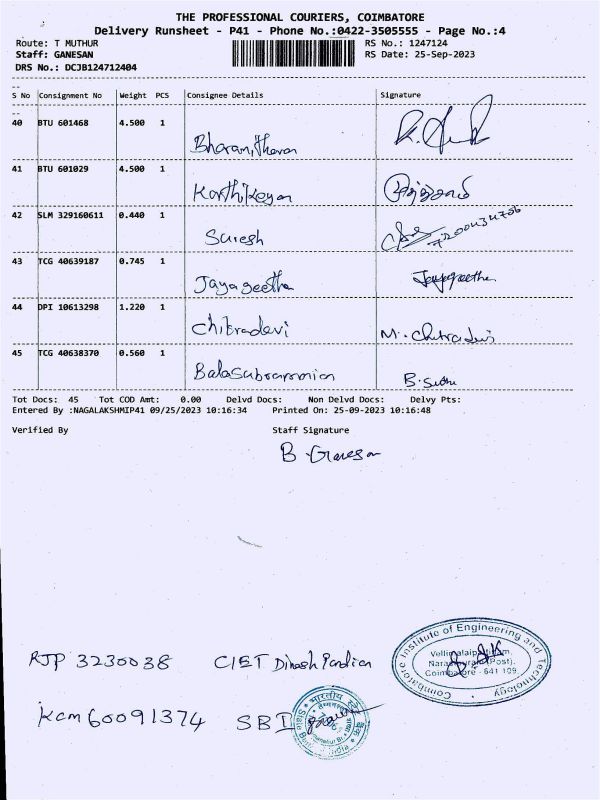 THE PROFESSIONAL COURIERS, COIMBATORE
Delivery Runsheet - P41 - Phone No.:0422-3505555 - Page No.:4
Route: T MUTHUR RS No.: 1247124
Staff: GANESAN RS Date: 25-Sep-2023
DRS No.: DCJB124712404
S No Consignment No Weight PCS Consignee Details Signature
40 BTU 601468 4.500 1 Bharanitharan
41 BTU 601029 4.500 1 Karthikeyan
42 SLM 329160611 0.440 1 Suresh
43 TCG 40639187 0.745 1 Jayageetha Jayageetha
44 DPI 10613298 1.220 1 Chitradevi M. Chitradevi
45 TCG 40638370 0.560 1 Balasubramanian
Tot Docs: 45 Tot COD Amt: 0.00 Delvd Docs: Non Delvd Docs: Delvy Pts:
Entered By :NAGALAKSHMIP41 09/25/2023 10:16:34 Printed On: 25-09-2023 10:16:48
Verified By Staff Signature
B. Ganesan
Coimbatore Institute of Engineering and Technology
Vellimalaipattinam,
Narasipuram (Post).
Coimbatore - 641 109.
RJP 3230038 CIET Dinesh Pandian
Kcm 60091374 SBI